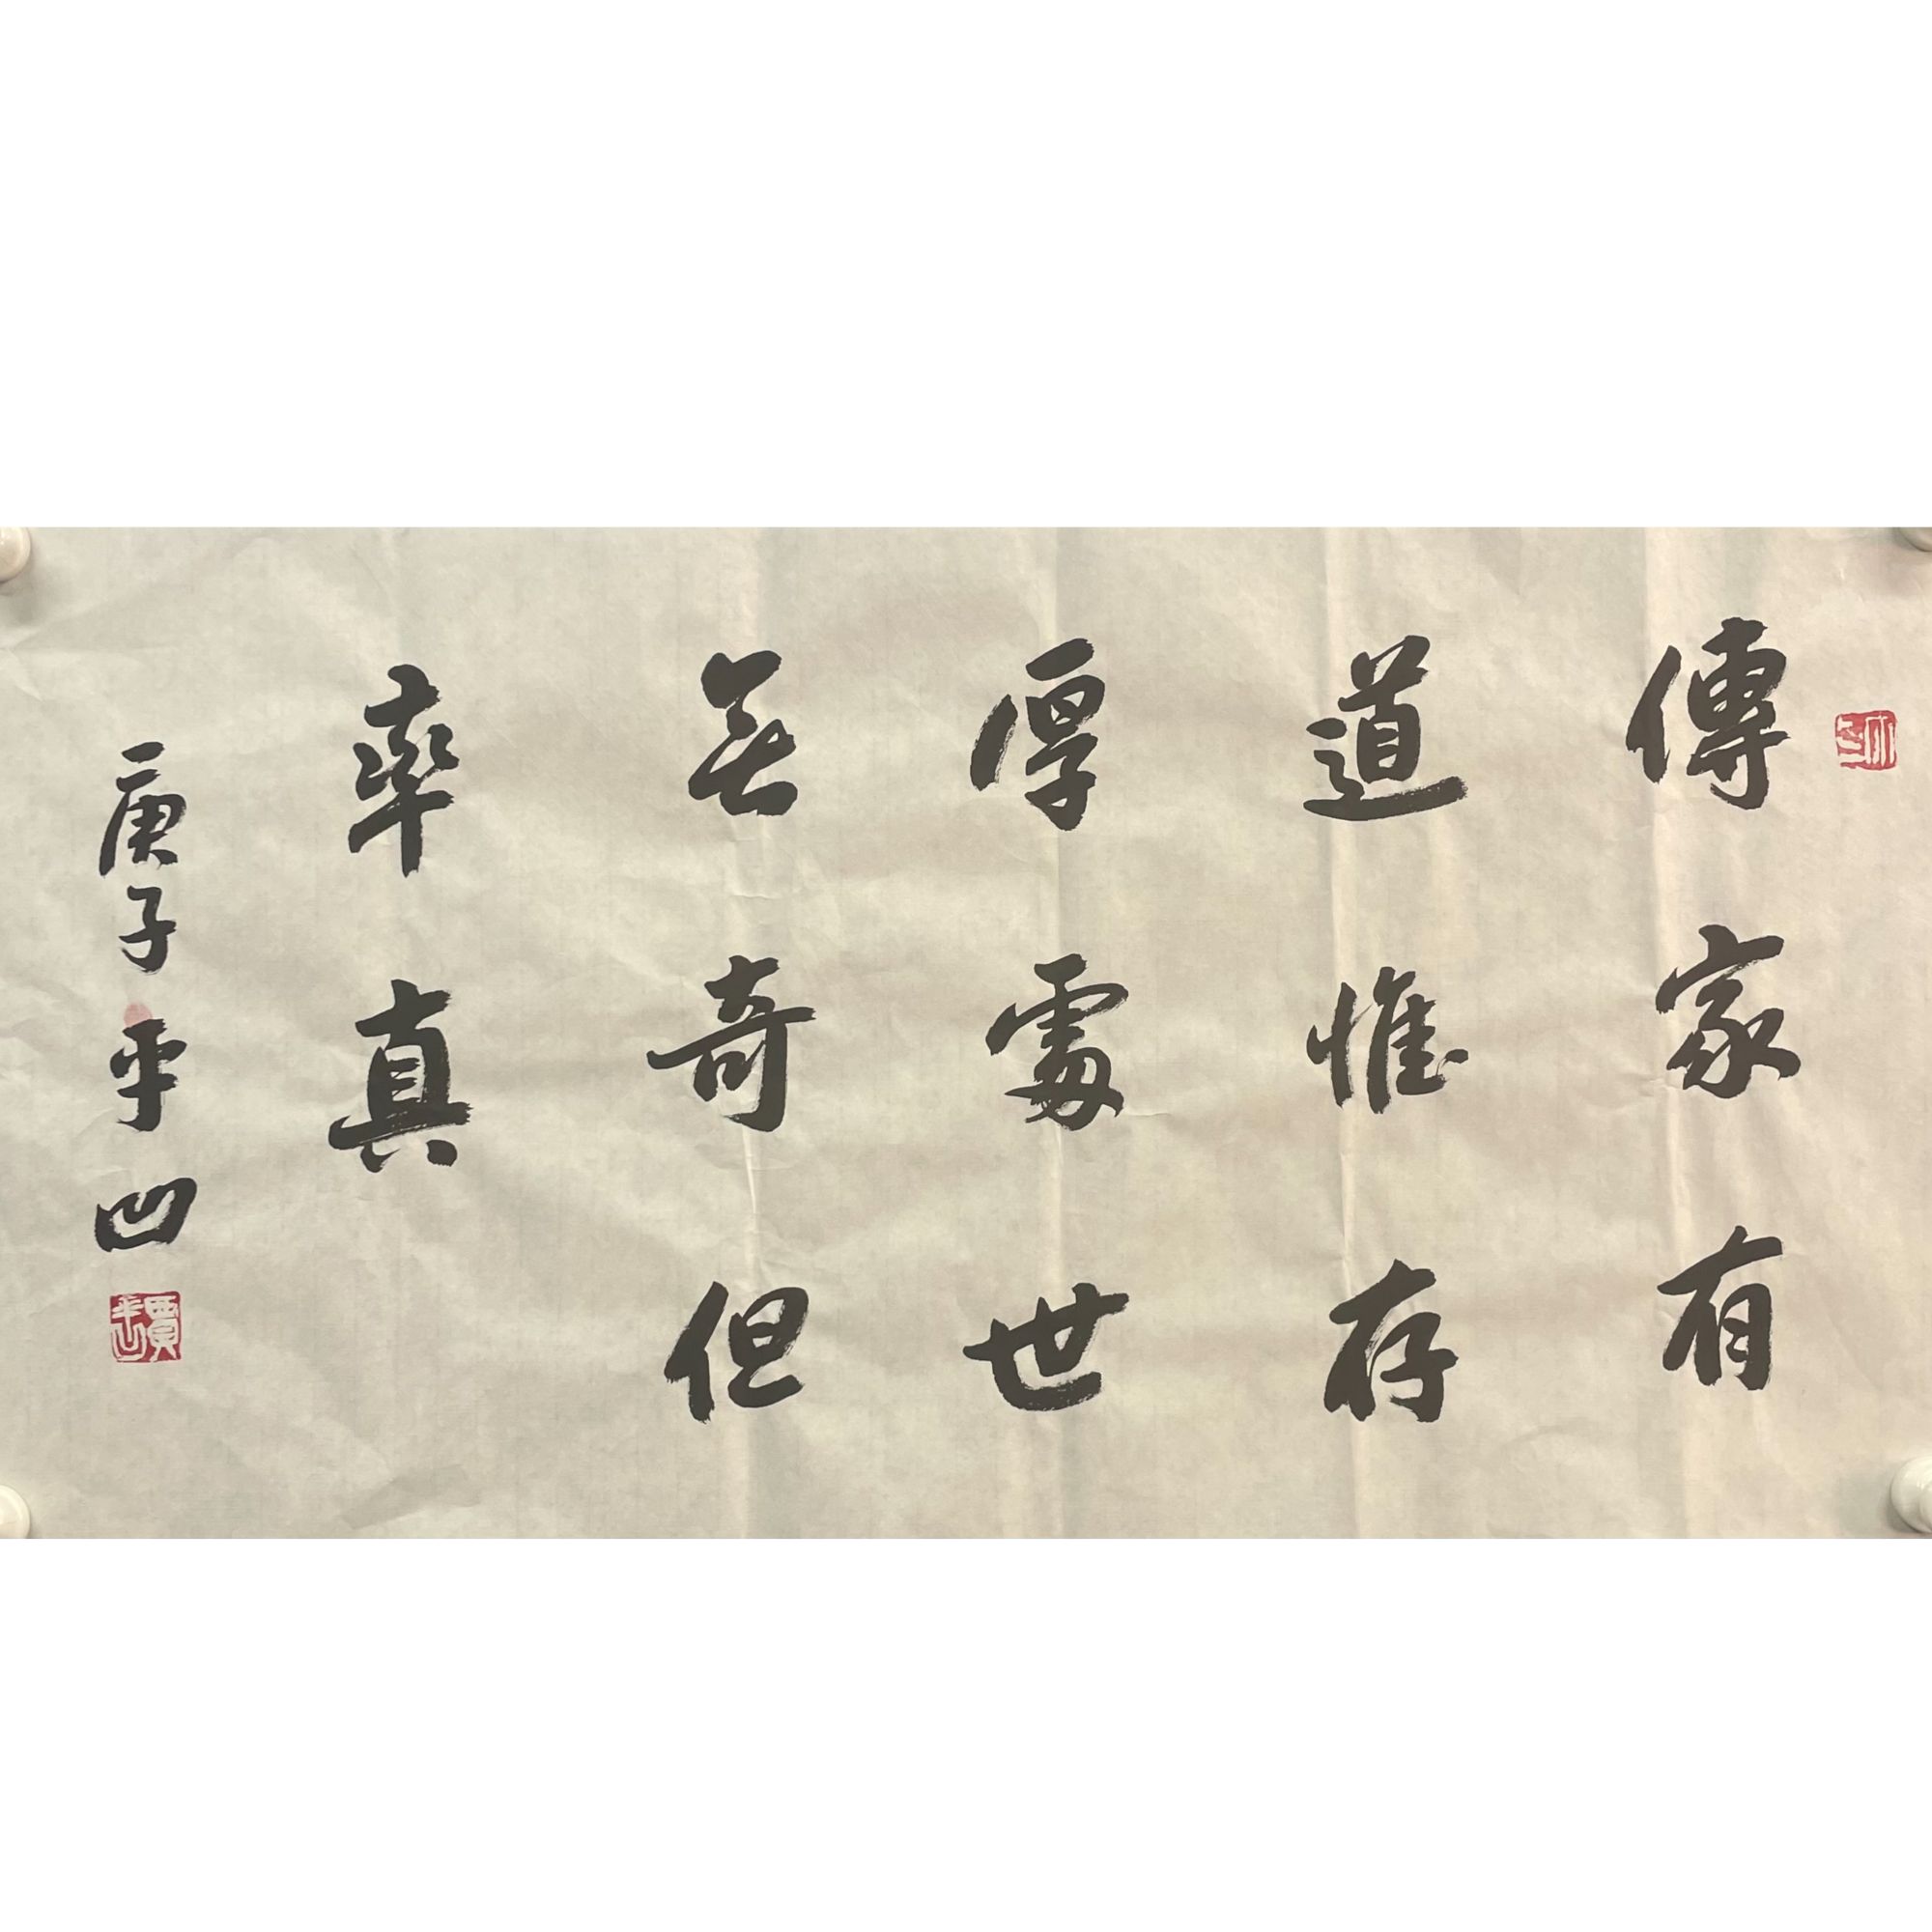 傳家有
道惟存
厚處世
無奇但
率真
庚子平凹
賈平凹